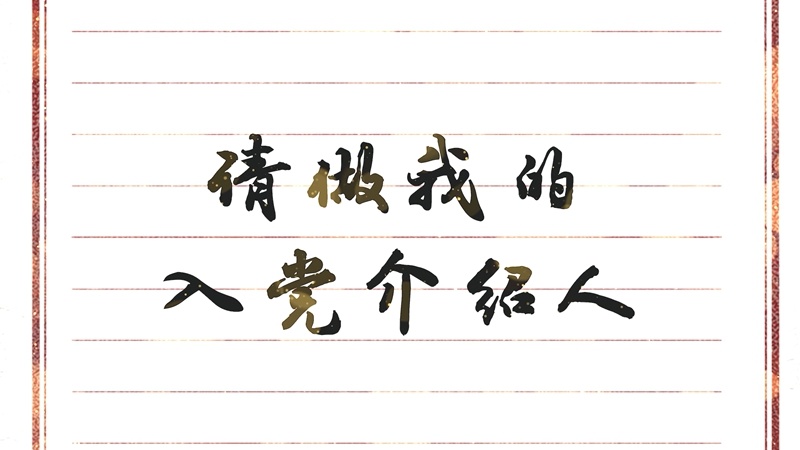 请做我的
入党介绍人